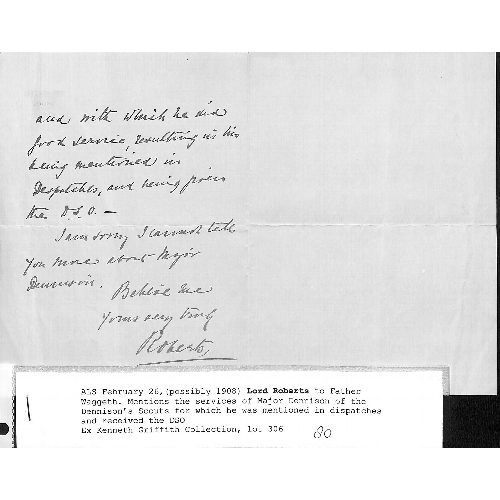 and with which he did
good service, resulting in his
being mentioned in
Despatches, and being given
the D.S.O. —
I am sorry I cannot tell
you more about Major
Dennison.
Believe me
Yours very truly
Roberts,
ALS February 26,(possibly 1908) Lord Roberts to Father
Waggett. Mentions the services of Major Dennison of the
Dennison's Scouts for which he was mentioned in dispatches
and received the DSO
Ex Kenneth Griffith Collection, lot 306
80